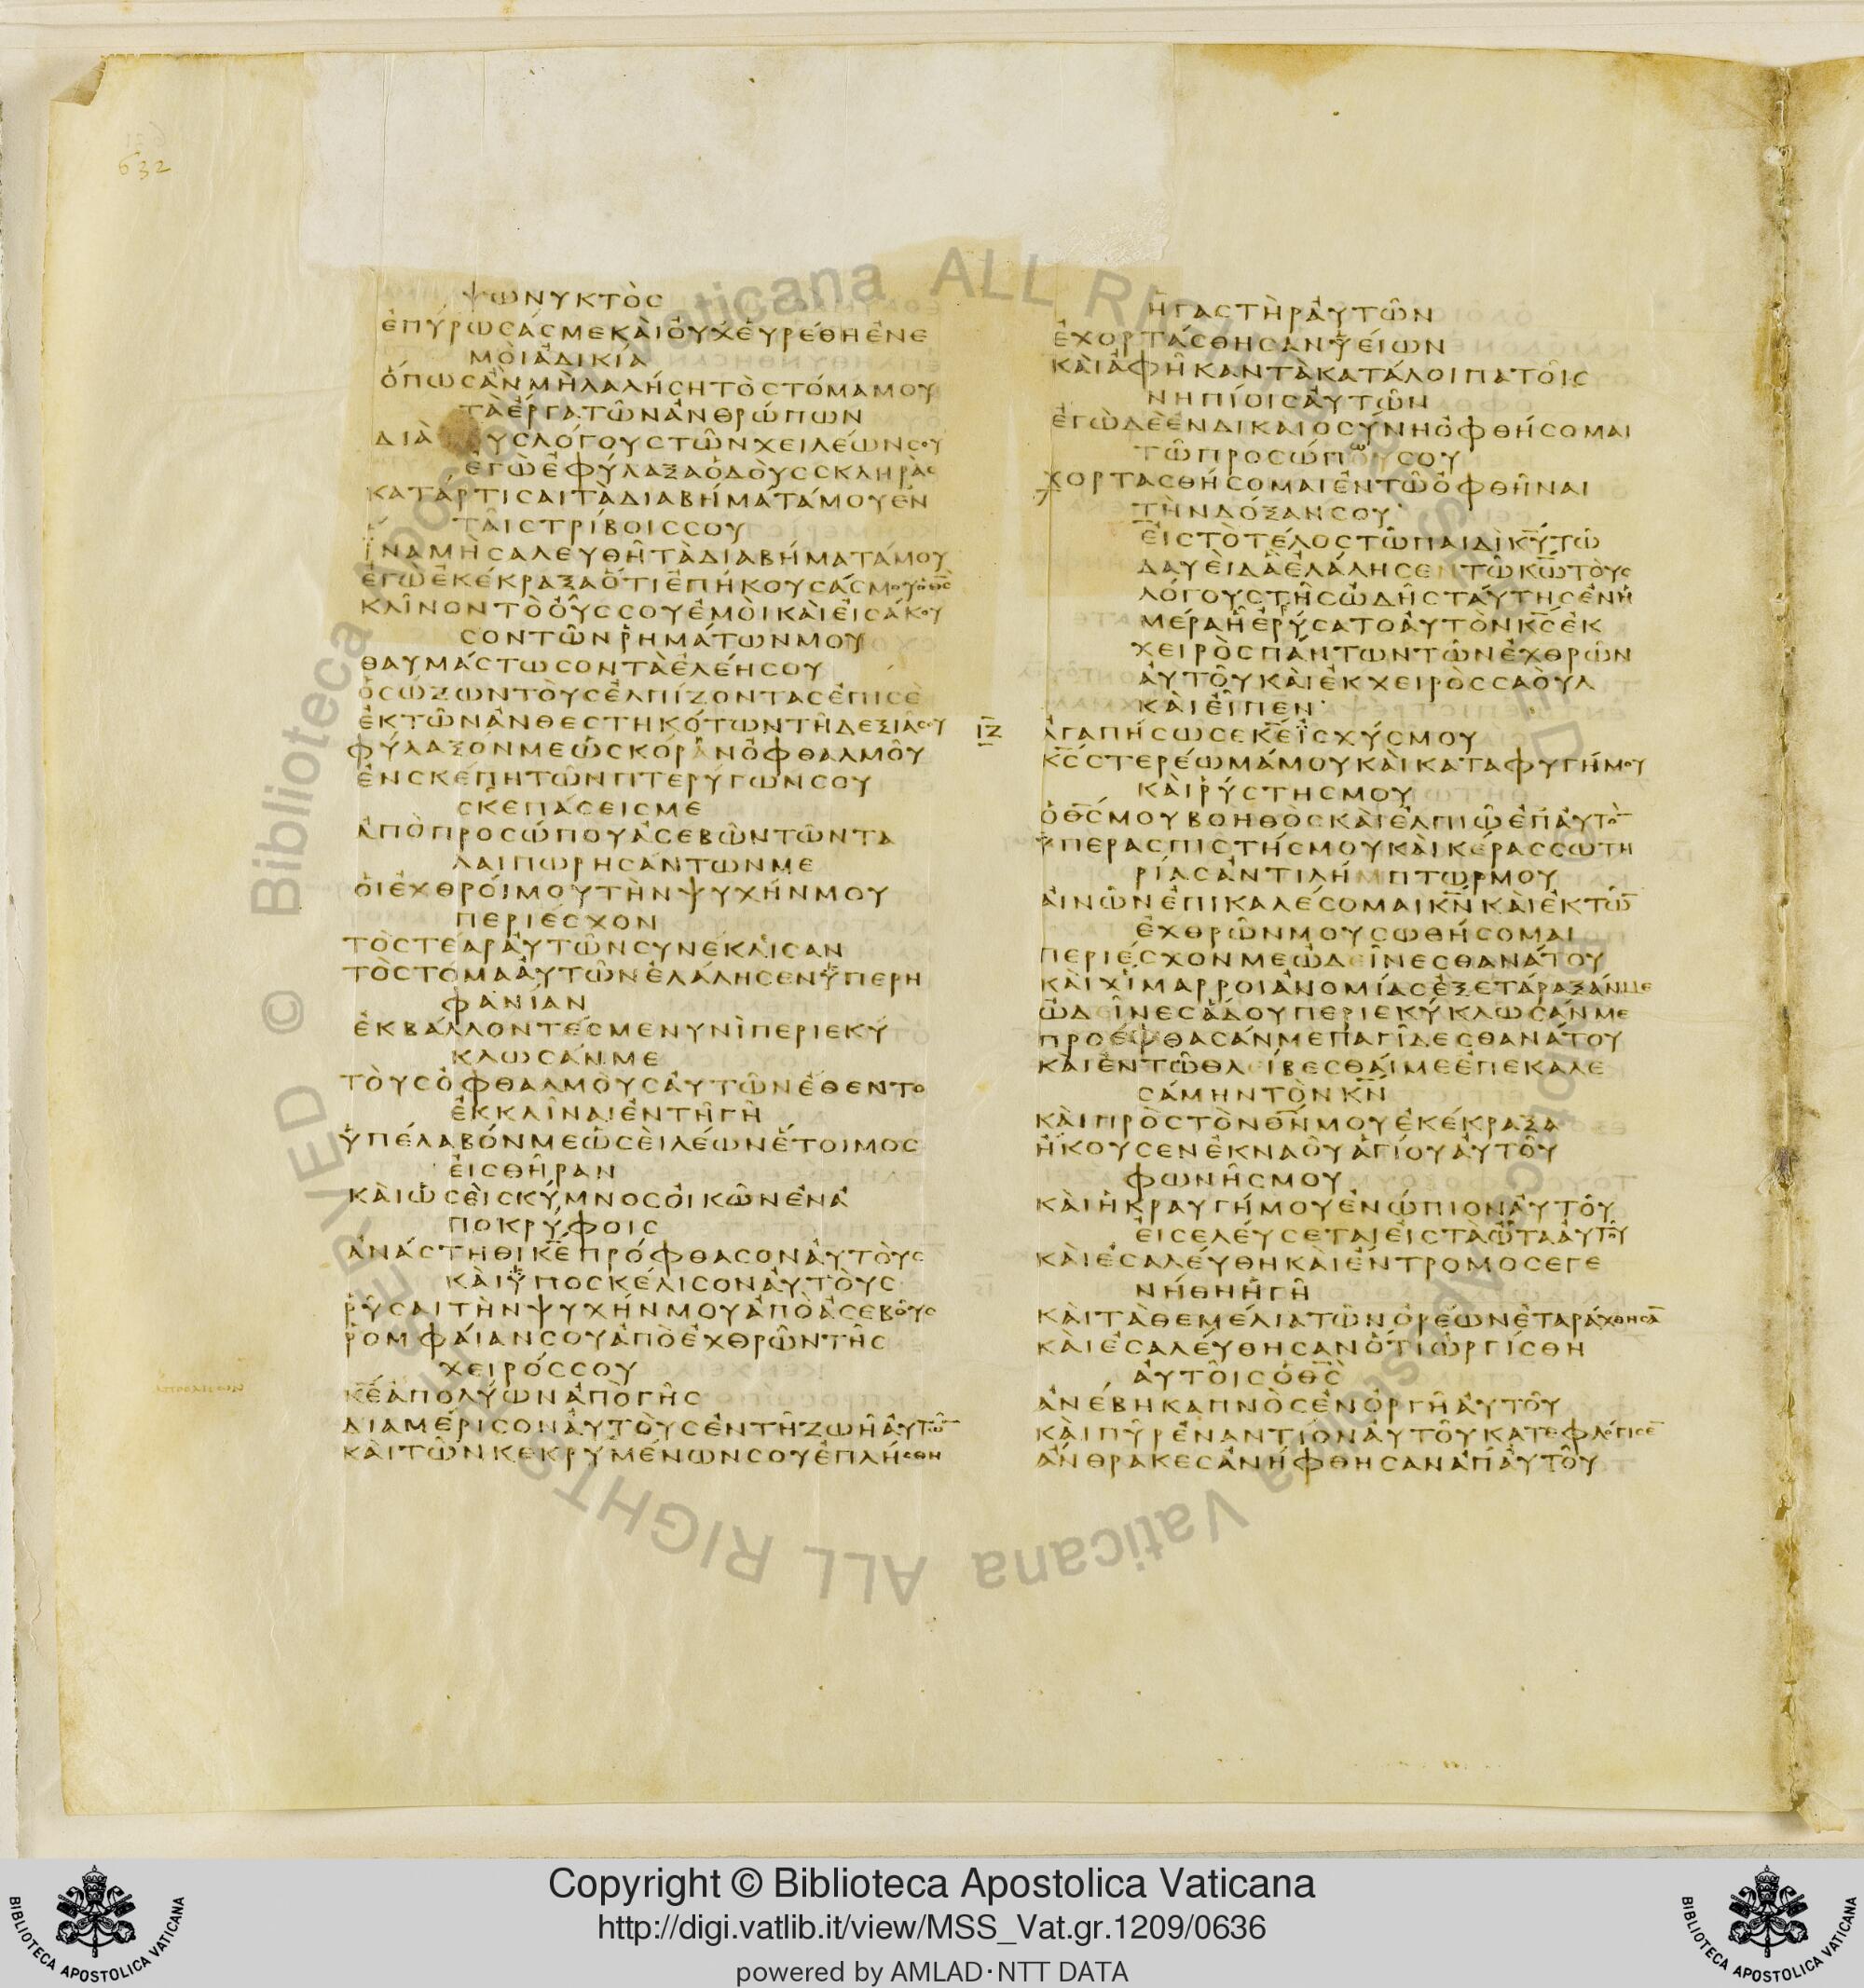 632
ψωνυκτὸς
ἐπύρωσάςμεκαὶοὐχεὑρέθηἐνε
μοὶἀδικία
ὅπωςἂνμὴλαλήσητὸστόμαμου
τὰἔργατῶνἀνθρώπων
διὰ υςλόγουςτῶνχειλέωνσου
ἐγὼἐφύλαξαὁδοὺςσκληρὰς
κατάρτισαιτὰδιαβήματάμουἐν
ταῖςτρίβοιςσου
ἵναμὴσαλευθῆτὰδιαβήματάμου
ἐγὼἐκέκραξαὅτιἐπήκουσάςμουὁθς
κλῖνοντὸοὖςσουἐμοὶκαὶεἰσάκου
σοντῶνῥημάτωνμου
θαυμάστωσοντὰἐλέησου
ὁσώζωντοὺςἐλπίζονταςἐπὶσὲ
ἐκτῶνἀνθεστηκότωντῆδεξιᾶσου
φύλαξόνμεὡςκόρανὀφθαλμοῦ
ἐνσκέπητῶνπτερύγωνσου
σκεπάσειςμε
ἀπὸπροσώπουἀσεβῶντῶντα
λαιπωρησάντωνμε
οἱἐχθροίμουτὴνψυχήνμου
περιέσχον
τὸστέαραὐτῶνσυνέκλισαν
τὸστόμααὐτῶνἐλάλησενὑπερη
φανίαν
ἐκβάλλοντέςμενυνὶπεριεκύ
κλωσάνμε
τοὺςὀφθαλμοὺςαὐτῶνἔθεντο
ἐκκλῖναιἐντῆγῆ
ὑπέλαβόνμεὡσεὶλέωνἕτοιμος
εἰςθῆραν
καὶὡσεὶσκύμνοςοἰκῶνἐνἀ
ποκρύφοις
ἀνάστηθικεπρόφθασοναὐτοὺς
καὶὑποσκέλισοναὐτοὺς
ῥῦσαιτὴνψυχήνμουἀπὸἀσεβοῦς
ῥομφαίανσουἀπὸἐχθρῶντῆς
χειρόςσου
κεἀπολύωνἀπὸγῆς
διαμέρισοναὐτοὺςἐντῆζωῆαὐτῶ
καὶτῶνκεκρυμένωνσουἐπλήσθη
ἡγαστὴραὐτῶν
ἐχορτάσθησανὑείων
καὶἀφῆκαντὰκατάλοιπατοῖς
νηπίοιςαὐτῶν
ἐγὼδὲἐνδικαιοσύνηὀφθήσομαι
τῶπροσώπωουσου
χορτασθήσομαιἐντῶὀφθῆναι
τὴνδόξανσου
εἰςτὸτέλοςτῶπαιδὶκυτῶ
δαυεὶδἃἐλάλησεντῶκωτοὺς
λόγουςτῆςὠδῆςταύτηςἐνἡ
μέραἧἐρύσατοαὐτὸνκςἐκ
χειρὸςπάντωντῶνἐχθρῶν
αὐτοῦκαὶἐκχειρὸςσαοὺλ
καὶεἶπεν
ΙΖ ἀγαπήσωσεκεἰσχύςμου
κςστερέωμάμουκαὶκαταφυγήμου
καὶῥύστηςμου
ὁθςμουβοηθὸςκαὶἐλπιῶἐπαὐτὸ
ὑπερασπιστήςμουκαὶκέραςσωτη
ρίαςἀντιλήμπτωρμου
αἰνῶνἐπικαλέσομαικνκαὶἐκτῶ
ἐχθρῶνμουσωθήσομαι
περιέσχονμεὠδεῖνεςθανάτου
καὶχίμαρροιἀνομίαςἐξετάραξάνμε
ὠδεῖνεςᾅδουπεριεκύκλωσάνμε
προέφθασάνμεπαγίδεςθανάτου
καὶἐντῶθλείβεσθαίμεἐπεκαλε
σάμηντὸνκν
καὶπρὸςτὸνθνμουἐκέκραξα
ἤκουσενἐκναοῦἁγίουαὐτοῦ
φωνῆςμου
καὶἡκραυγήμουἐνώπιοναὐτοῦ
εἰσελεύσεταιεἰςτὰὦτααὐτοῦ
καὶἐσαλεύθηκαὶἔντρομοςεγε
νήθηἡγῆ
καὶτὰθεμέλιατῶνὀρέωνἐταράχθησα
καὶἐσαλεύθησανὅτιὠργίσθη
αὐτοῖςὁθς
ἀνέβηκαπνὸςἐνὀργῆαὐτοῦ
καὶπῦρἐναντίοναὐτοῦκατεφλόγισε
ἄνθρακεςἀνήφθησανἀπαὐτοῦ
© Biblioteca Apostolica Vaticana ALL RIGHTS RESERVED
© Biblioteca Apostolica Vaticana ALL RIGHTS RESERVED
Copyright © Biblioteca Apostolica Vaticana
http://digi.vatlib.it/view/MSS_Vat.gr.1209/0636
powered by AMLAD·NTT DATA
BIBLIOTECA APOSTOLICA VATICANA
BIBLIOTECA APOSTOLICA VATICANA